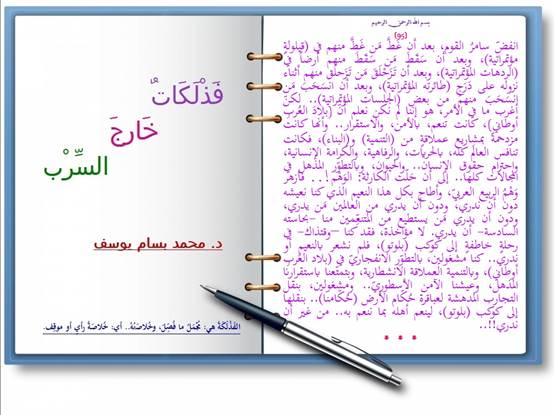 بسم الله الرحمن الرحيم
(95)
انفضّ سامرُ القوم، بعد أن غَطَّ مَن غَطَّ منهم في (قيلولةٍ
مؤتمراتية)، وبعد أن سَقَطَ مَن سَقَطَ منهم أرضاً في
(الردهات المؤتمراتية)، وبعد أن تَزَحْلَقَ مَن تَزَحْلَقَ منهم أثناء
نزوله على دَرَجِ (طائرته المؤتمراتية)، وبعد أن انسَحَبَ مَن
انسَحَبَ منهم من بعض (الجلسات المؤتمراتية).. لكنّ
أغرب ما في الأمر، هو إننا لم نكن نعلم أنّ (بلادَ العُربِ
أوطاني)، كانت تنعم، بالأمن، والاستقرار.. وأنها كانت
مزدحمةً بمشاريع عملاقةٍ من (التنمية) و(البناء)، فكانت
تنافس العالَم كلّه، بالحريات، والرفاهية، والكرامة الإنسانية،
واحترام حقوق الإنسان.. والحيوان، وبالتطوّر المذهل في
المجالات كلّها.. إلى أن حَلّت الكارثة: الوَهْمُ!.. فأزهَرَ
وَهْمُ الربيع العربيّ، وأطاح بكل هذا النعيم الذي كنا نعيشه
دون أن ندري، ودون أن يدري من العالَمين مَن يدري،
ودون أن يدريَ مَن يستطيع من المتنعِّمين منا –بحاسته
السادسة– أن يدري. لا مؤاخذة، فقد كنا –وقتذاك– في
رحلةٍ خاطفةٍ إلى كوكب (بلوتو)، فلم نشعر بالنعيم أو
ندري.. كنا مشغولين، بالتطوّر الانفجاريّ في (بلاد العُربِ
أوطاني)، وبالتنمية العملاقة الانشطارية، وبتمتّعنا باستقرارنا
المذهل، وعيشنا الآمن الأسطوريّ.. ومشغولين، بنقل
التجارب المدهشة لعباقرة حُكّام الأرض (حُكّامنا).. بنقلها
إلى كوكب (بلوتو)، لينعم أهله بما ننعم به.. من غير أن
ندري!!..
* * *
فَذْلَكَاتٌ
خَارِجَ
السِّرْب
د. محمد بسام يوسف
الفَذْلَكَةُ هي: مُجْمَلُ ما فُصِّلَ، وخُلاصَتُهُ.. أي: خُلاصَةُ رأيٍ أو موقِف.